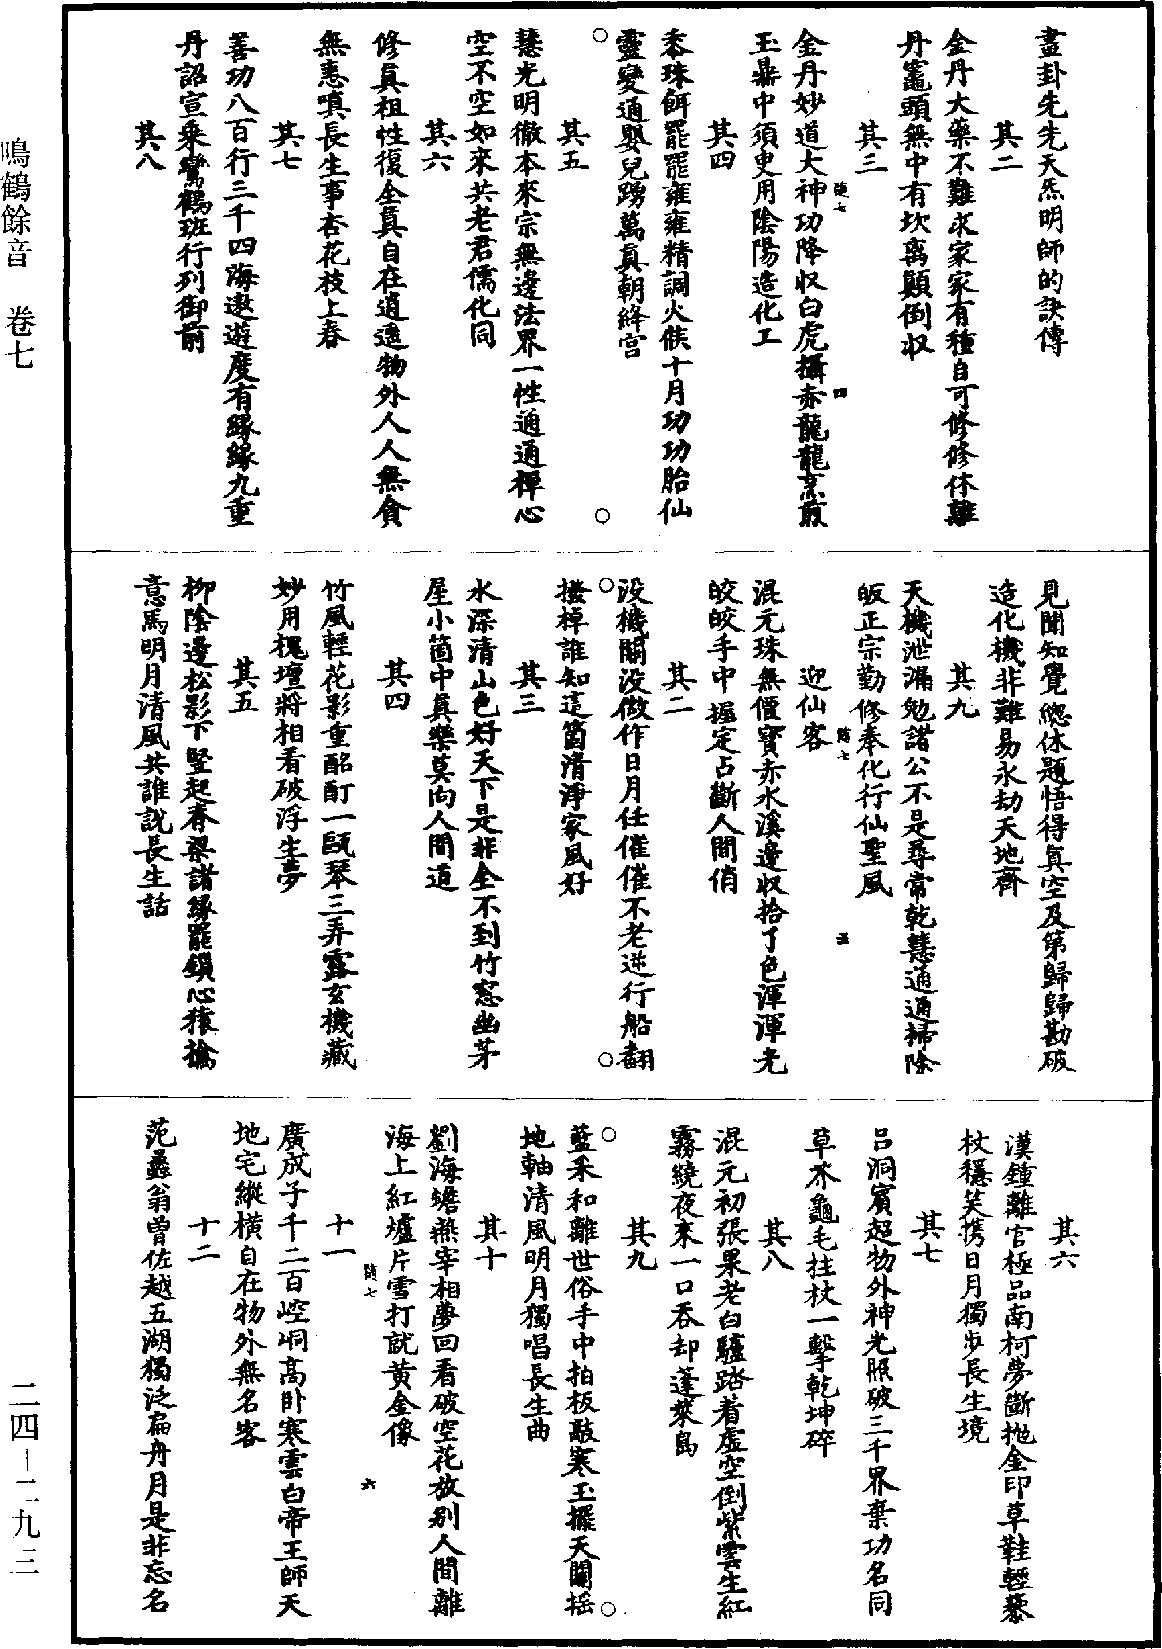 畫卦先先天炁明師的訣傳
其二
金丹大藥不難求家家有種自可修修修休離
丹竈頭無中有坎离顛倒収
其三
金丹妙道大神功降収白虎攝赤龍龍烹煎
玉鼎中須臾用陰陽造化工
其四
黍珠餌罷罷雍雍精調火候十月功功胎仙
靈變通嬰兒踴萬真朝絳宫
其五
慧光明徹本來宗無邊法界一性通通禪心
空不空如來共老君儒化同
其六
修真祖性復全真自在逍遥物外人人無貪
無恚嗔長生事杏花枝上春
其七
善功八百行三千四海遨遊度有緣緣九重
丹詔宣乘鸞鶴班行列御前
其八
隨七
四
見聞知覺總休題悟得真空及第歸歸勘破
造化機非難易永劫天地齊
其九
天機泄漏勉諸公不是尋常乾慧通通掃除
皈正宗勤修奉化行仙聖風
迎仙客
混元珠無價寶赤水溪邊収拾了色渾渾光
皎皎手中握定占斷人間俏
其二
没機關没做作日月任催催不老逆行船翻
撥棹誰知這箇清淨家風好
其三
水深清山色好天下是非全不到竹窓幽茅
屋小箇中真樂莫向人間道
其四
竹風輕花影重酩酊一甌琴三弄露玄機藏
妙用槐壇將相看破浮生夢
其五
柳陰邊松影下竪起脊梁諸緣罷鎖心猿擒
意馬明月清風共誰說長生話
隨七
五
其六
漢鍾離官極品南柯夢斷抛金印草鞋輕藜
杖穩笑携日月獨步長生境
其七
吕洞賓超物外神光照破三千界棄功名同
草芥龜毛拄杖一擊乾坤碎
其八
混元初張果老白驢踏着虚空倒紫雲生紅
霧繞夜來一口吞却蓬萊島
其九
藍釆和離世俗手中拍板敲寒玉擺天關摇
地軸清風明月獨唱長生曲
其十
劉海蟾燕宰相夢回看破空花放别人間離
海上紅爐片雪打就黄金像
十一
廣成子千二百崆峒高卧寒雲白帝王師天
地宅縱横自在物外無名客
十二
范蠡翁曾佐越五湖獨泛扁舟月是非忘名
隨七
六
鳴鶴餘音 卷七
二四－二九三